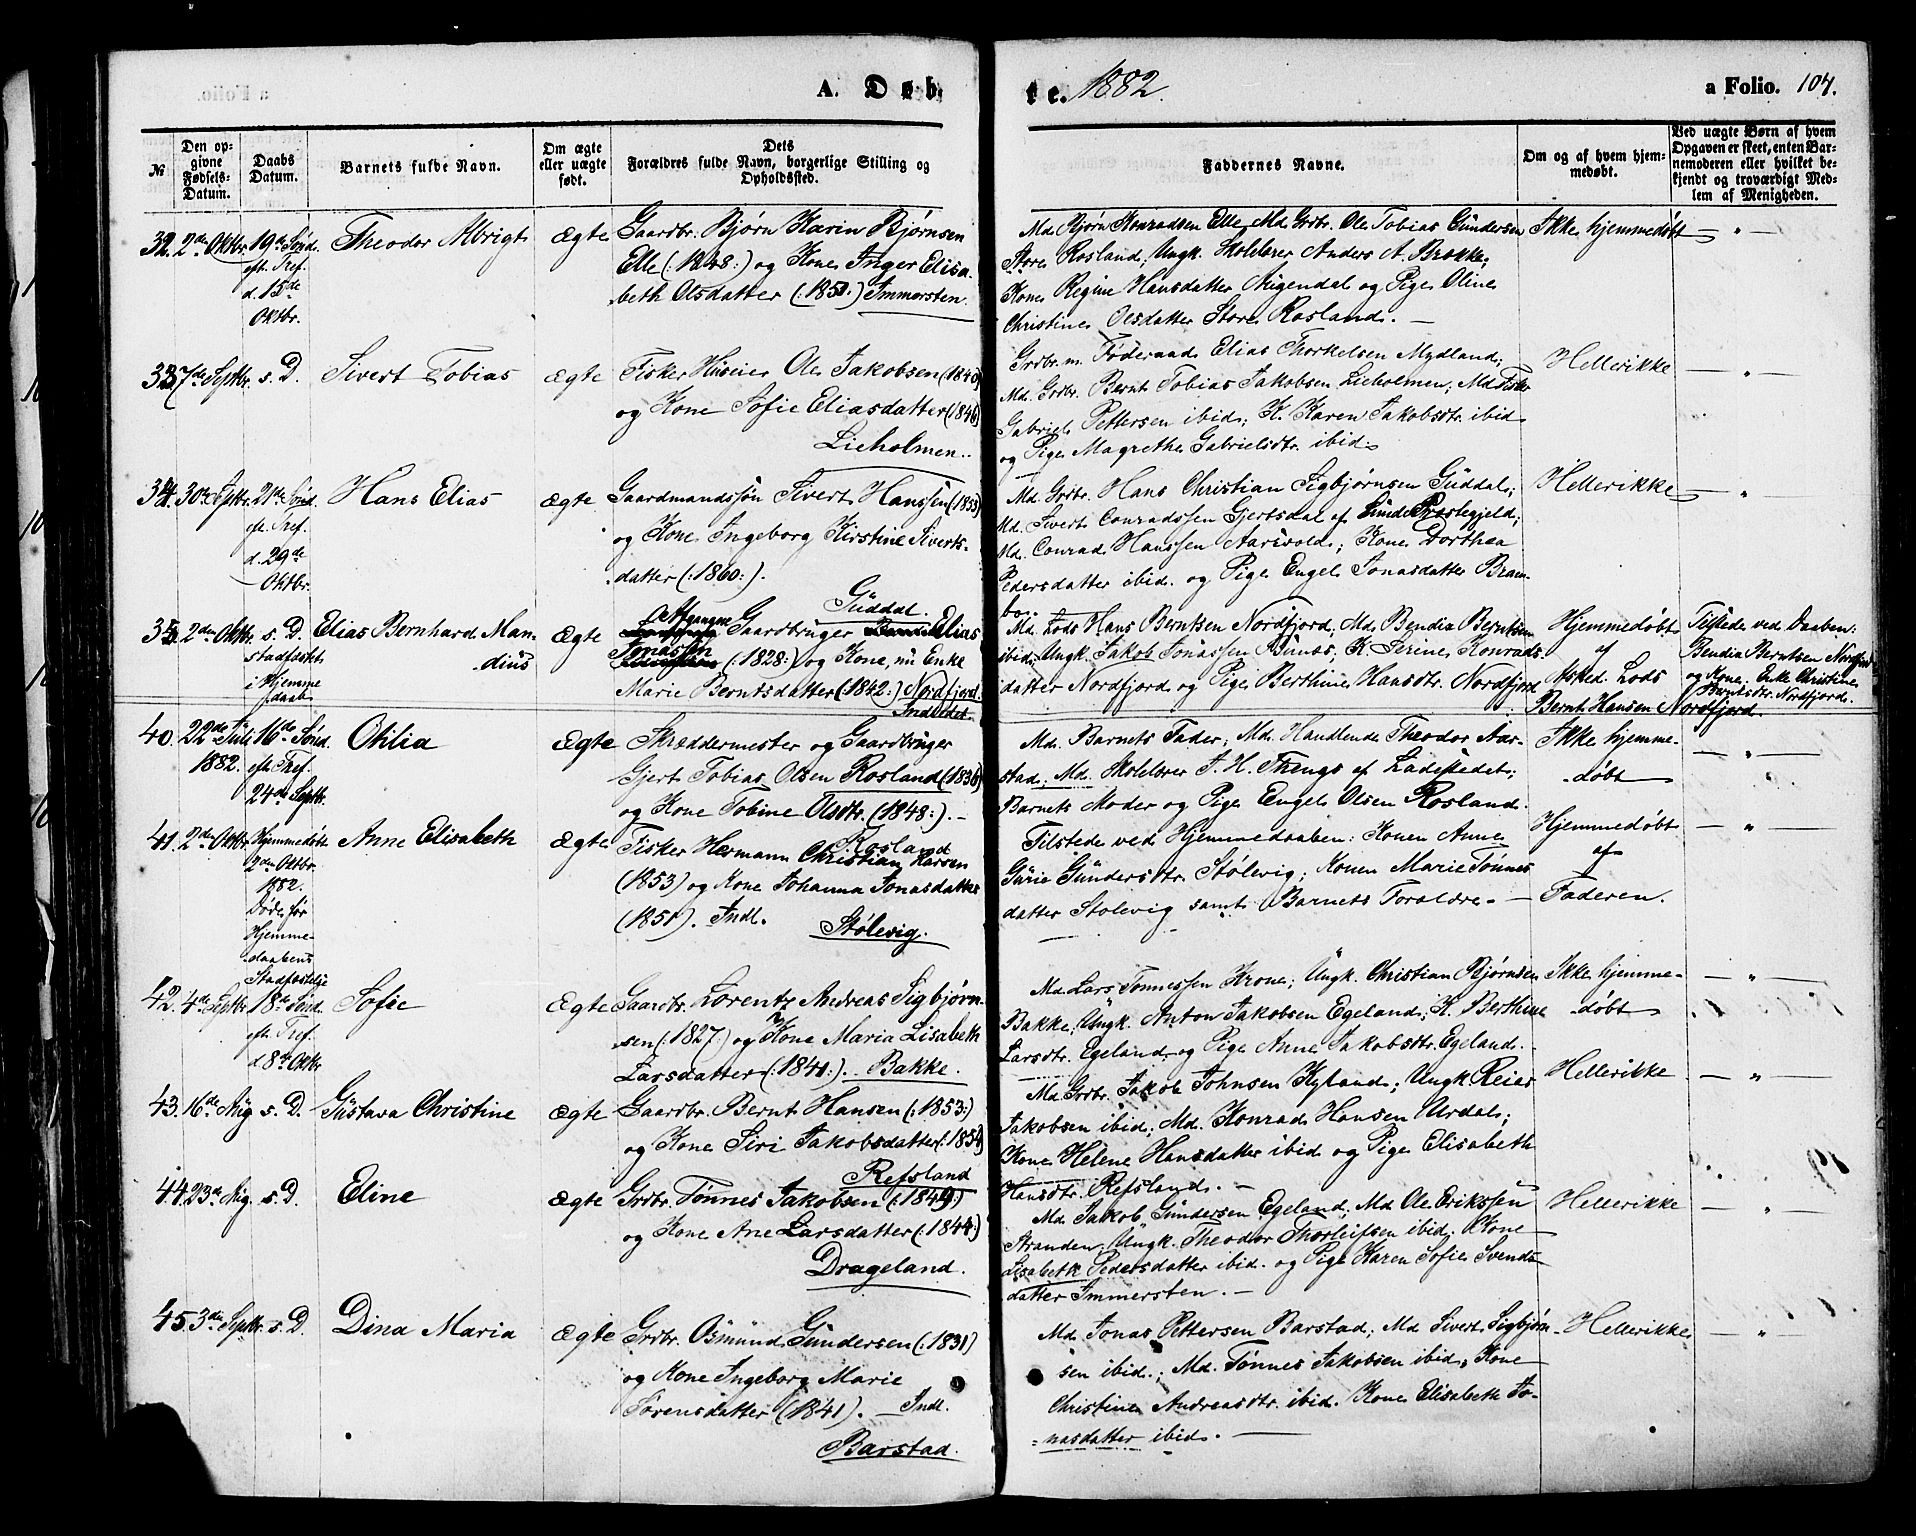 A. Døb
te. 1882.
a Folio. 104.
№
Den op-
givne
Fødsels-
Datum.
Daabs
Datum.
Barnets fulde Navn.
Om ægte
eller uægte
født.
Dets
Forældres fulde Navn, borgerlige Stilling og
Opholdssted.
Faddernes Navne.
Om og af hvem hjem-
medøbt.
Ved uægte Børn af hvem
Opgaven er skeet, enten Bar-
nemoderen eller hvilket be-
kjendt og troværdigt Med-
lem af Menigheden.
32. 2den Oktbr. 19de Sønd.
eft. Tref.
d. 15de
Oktbr.
Theodor Albrigt
Ægte
Gaardbr. Bjørn Karin Bjørnsen
Elle (:1848:) og Kone Inger Elisa
beth Olsdatter (:1850:) Immersten.
Md. Bjørn Konradsen Elle, Md. Grdbr. Ole Tobias Gundersen
Store Rosland; Ungk. Skolelærer Anders A. Brakke;
Kone Regine Hansdatter Aagendal og Pige Oline
Christine Olsdatter Store Rosland. —
Ikke hjemmedøbt
— " —
33. 7de Septbr. s. D.
Sivert Tobias
Ægte
Fisker Huseier Ole Jakobsen (1840)
og Kone Sofie Eliasdatter (1846)
Lieholmen.
Grdbr. m. Føderaad Elias Thorkelsen Mydland;
Md. Grdbr. Bernt Tobias Jakobsen Lieholmen; Md. Fisker
Gabriel Pettersen ibid; K. Karen Jakobsdtr. ibid
og Pige Magrethe Gabrielsdtr. ibid.
Hellerikke
— " —
34. 30te Septbr. 21de Sønd.
eft. Tref.
d. 29de
Oktbr.
Hans Elias
Ægte
Gaardmandssøn Sivert Hanssen (1853)
og Kone Ingeborg Kirstine Siverts-
datter (:1860:).
Guddal.
Md. Grdbr. Hans Christian Sigbjørnsen Guddal;
Md. Sivert Conradssen Gjertsdal af Lunde Præstegjeld;
Md. Conrad Hanssen Aarsvold; Kone Dorthea
Pedersdatter ibid. og Pige Engel Jonasdatter Bram-
bo.
Hellerikke
— " —
35. 2den Oktbr. s. D.
stadfæstet
i Hjemme
daab
Elias Bernhard Man-
dius
Ægte
Afgangne Gaardbruger Elias
Jonassen (:1828:) og Kone, nu Enke
Marie Berntsdatter (1842:) Nordfjord.
Indledet.
Md. Lods Hans Berntsen Nordfjord; Md. Bendia Berntsen
ibid; Ungk. Jakob Jonassen Bunes, K. Serine Konrads-
datter Nordfjord og Pige Berthine Hansdtr. Nordfjord
Hjemmedøbt
af
Afsked. Lods
Bernt Hansen Nordfjord.
Tilstede ved Daaben:
Bendia Berntsen Nordfjord
og Kone. Enke Christine
Berntsdtr. Nordfjord.
40. 22de Juli
1882.
16de Sønd.
eft. Tref.
24de Septbr.
Otilia
Ægte
Skræddermester og Gaardbruger
Gjert Tobias Olsen Rosland (1836)
og Kone Tobine Olsdtr. (1848:). —
Rosland
Md. Barnets Fader; Md. Handlende Theodor Aar-
stad; Md. Skolelærer J. H. Thengs af Ladestedet;
Barnets Moder og Pige Engel Olsen Rosland.
Ikke hjemme-
døbt
— " —
41. 2den Oktbr.
Hjemmedøbt
2den Oktbr.
1882.
Døde før
Hjemme-
daabens
Stadfæstelse
Anne Elisabeth
Ægte
Fisker Hermann Christian Larsen
(1853) og Kone Johanna Jonasdatter
(1851). Indl.
Stølevig.
Tilstede ved Hjemmedaaben: Konen Anne
Gurie Gundersdtr. Stølevig; Konen Marie Tønnes
datter Stølevig samt Barnets Forældre. —
Hjemmedøbt
af
Faderen.
— " —
42. 4de Septbr. 18de Sønd.
eft. Tref.
d. 8de Oktbr
Sofie
Ægte
Gaardbr. Lorentz Andreas Sigbjørn-
sen (:1827:) og Kone Maria Lisabeth
Larsdatter (:1841:). Bakke.
Md. Lars Tønnessen Krone; Ungk. Christian Bjørnsen
Bakke; Ungk. Anton Jakobsen Egeland; K. Berthine
Larsdtr. Egeland og Pige Anne Jakobsdtr. Egeland.
Ikke hjemme-
døbt
— " —
43. 16de Aug s. D.
Gustava Christine
Ægte
Gaardbr. Bernt Hansen (:1853:)
og Kone Siri Jakobsdatter (:1854)
Refsland
Md. Grdbr. Jakob Johnsen Kyland; Ungk. Reias
Jakobsen ibid; Md. Konrad Hansen Urdal;
Kone Helene Hansdatter ibid og Pige Elisabeth
Hansdtr. Refsland. —
Hellerikke
— " —
44. 23de Aug s. D.
Eline
Ægte
Grdbr. Tønnes Jakobsen (:1849:)
og Kone Ane Larsdatter (:1844:)
Drageland.
Md. Jakob Gundersen Egeland; Md. Ole Erikssen
Stranden; Ungk. Theodor Thorleifsen ibid; Kone
Lisabeth Pedersdatter ibid. og Pige Karen Sofie Svends
datter Immersten. —
Hellerikke
— " —
45. 3die Septbr. s. D.
Dina Maria
Ægte
Grdbr. Osmund Gundersen (:1831)
og Kone Ingeborg Marie
Sørensdatter (1841). — Indl.
Barstad.
Md. Jonas Pettersen Barstad; Md. Sivert Sigbjørn-
sen ibid.; Md. Tønnes Jakobsen ibid. Kone
Christine Andreasdtr. ibid. Kone Elisabeth Jo-
nasdatter ibid. —
Hellerikke
— " —